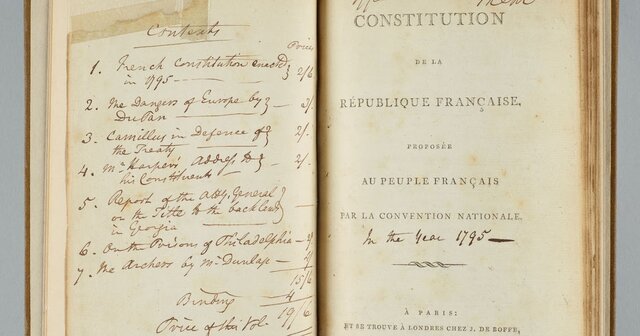 Contents
Price
1. French Constitution enacted
in 1795 2/6
2. The Dangers of Europe by
DuPan 3/-
3. Camillus in Defence of
the Treaty 2/-
4. Mr Harper's Address to
his Constituents 2/-
5. Report of the Atty General
on the Title to the back lands
in Georgia
6. On the Prisons of Philadelphia
7. The Archers by Mr Dunlap
15/6
Binding 4
19/6
Price of this Vol.
CONSTITUTION
DE LA
RÉPUBLIQUE FRANÇAISE,
PROPOSÉE
AU PEUPLE FRANÇAIS
PAR LA CONVENTION NATIONALE,
In the Year 1795
À PARIS:
ET SE TROUVE À LONDRES CHEZ J. DE BOFFE,